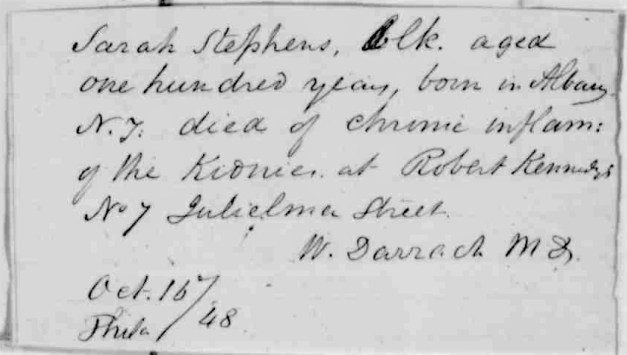 Sarah Stephens, Blk. aged
one hundred years, born in Albany
N.Y. died of chronic inflam:
of the Kidnies. at Robert Kennedys
No 7 Julielma Street.
W. Darrach M D.
Oct. 16
Phila / 48